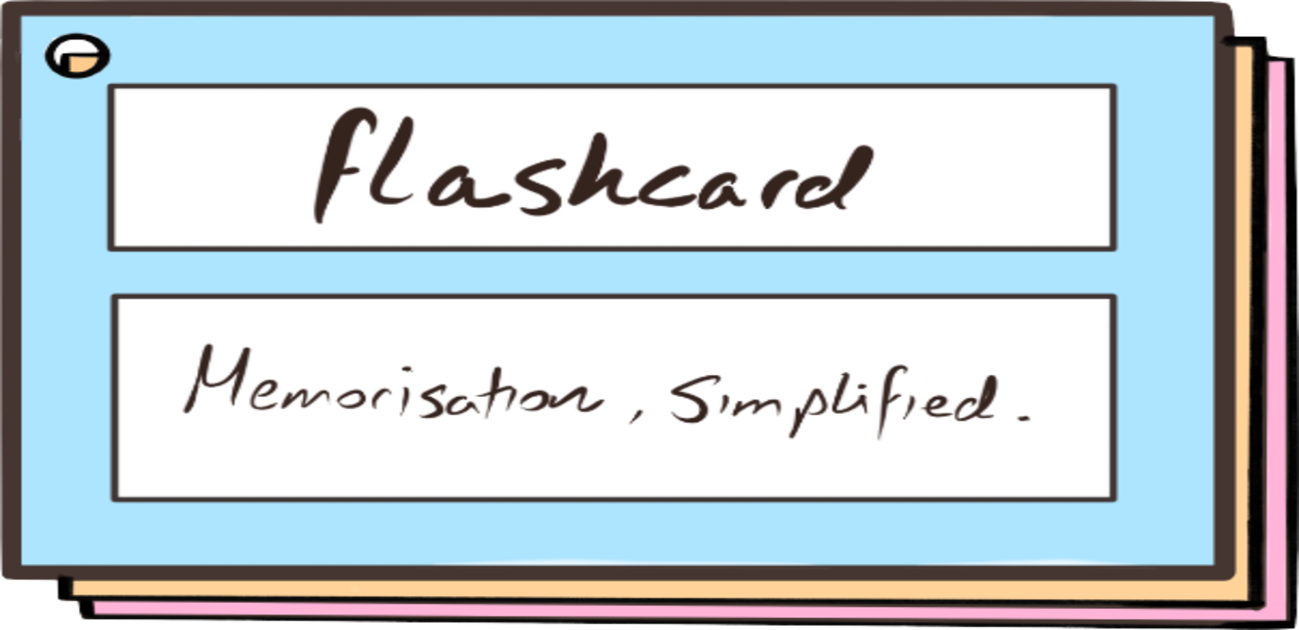 flashcard
Memorisation, Simplified.